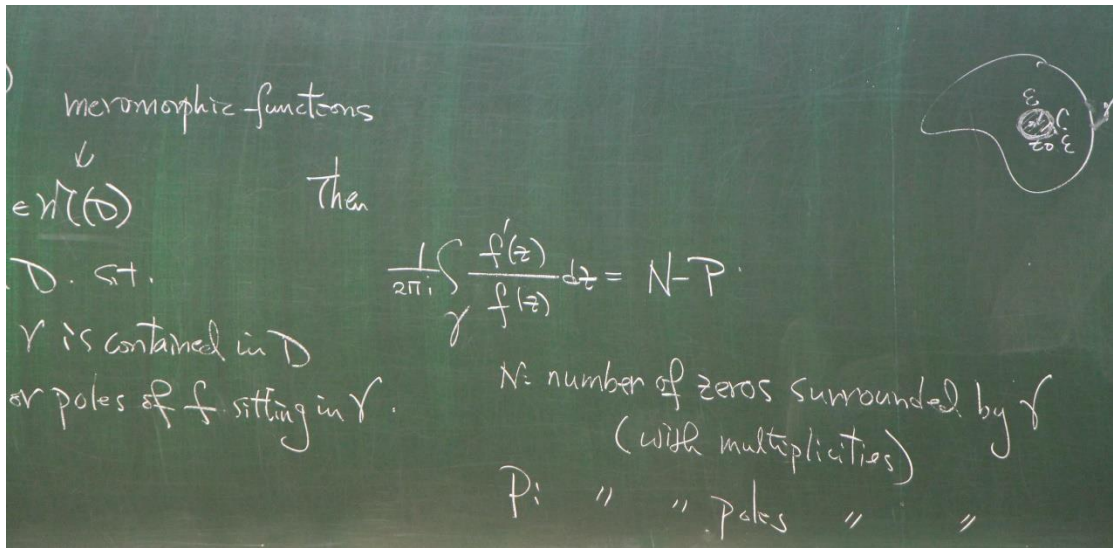 meromorphic functions
↓
∈ M(D) Then
D. s.t.
γ is contained in D
or poles of f sitting in γ.
1/2πi ∫γ f'(z)/f(z) dz = N-P.
N: number of zeros surrounded by γ
(with multiplicities)
P: " " poles " "
ε
z0 ε
γ